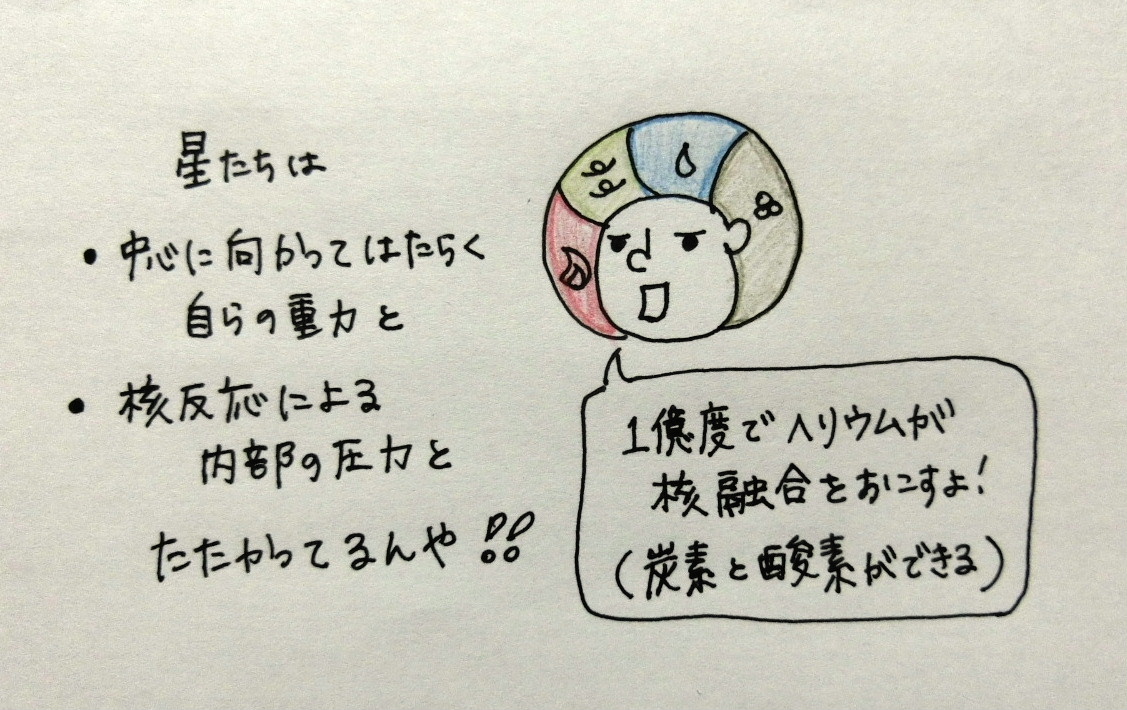 星たちは
• 中心に向かってはたらく
自らの重力と
• 核反応による
内部の圧力と
たたかってるんや!!
1億度でヘリウムが
核融合をおこすよ!
(炭素と酸素ができる)